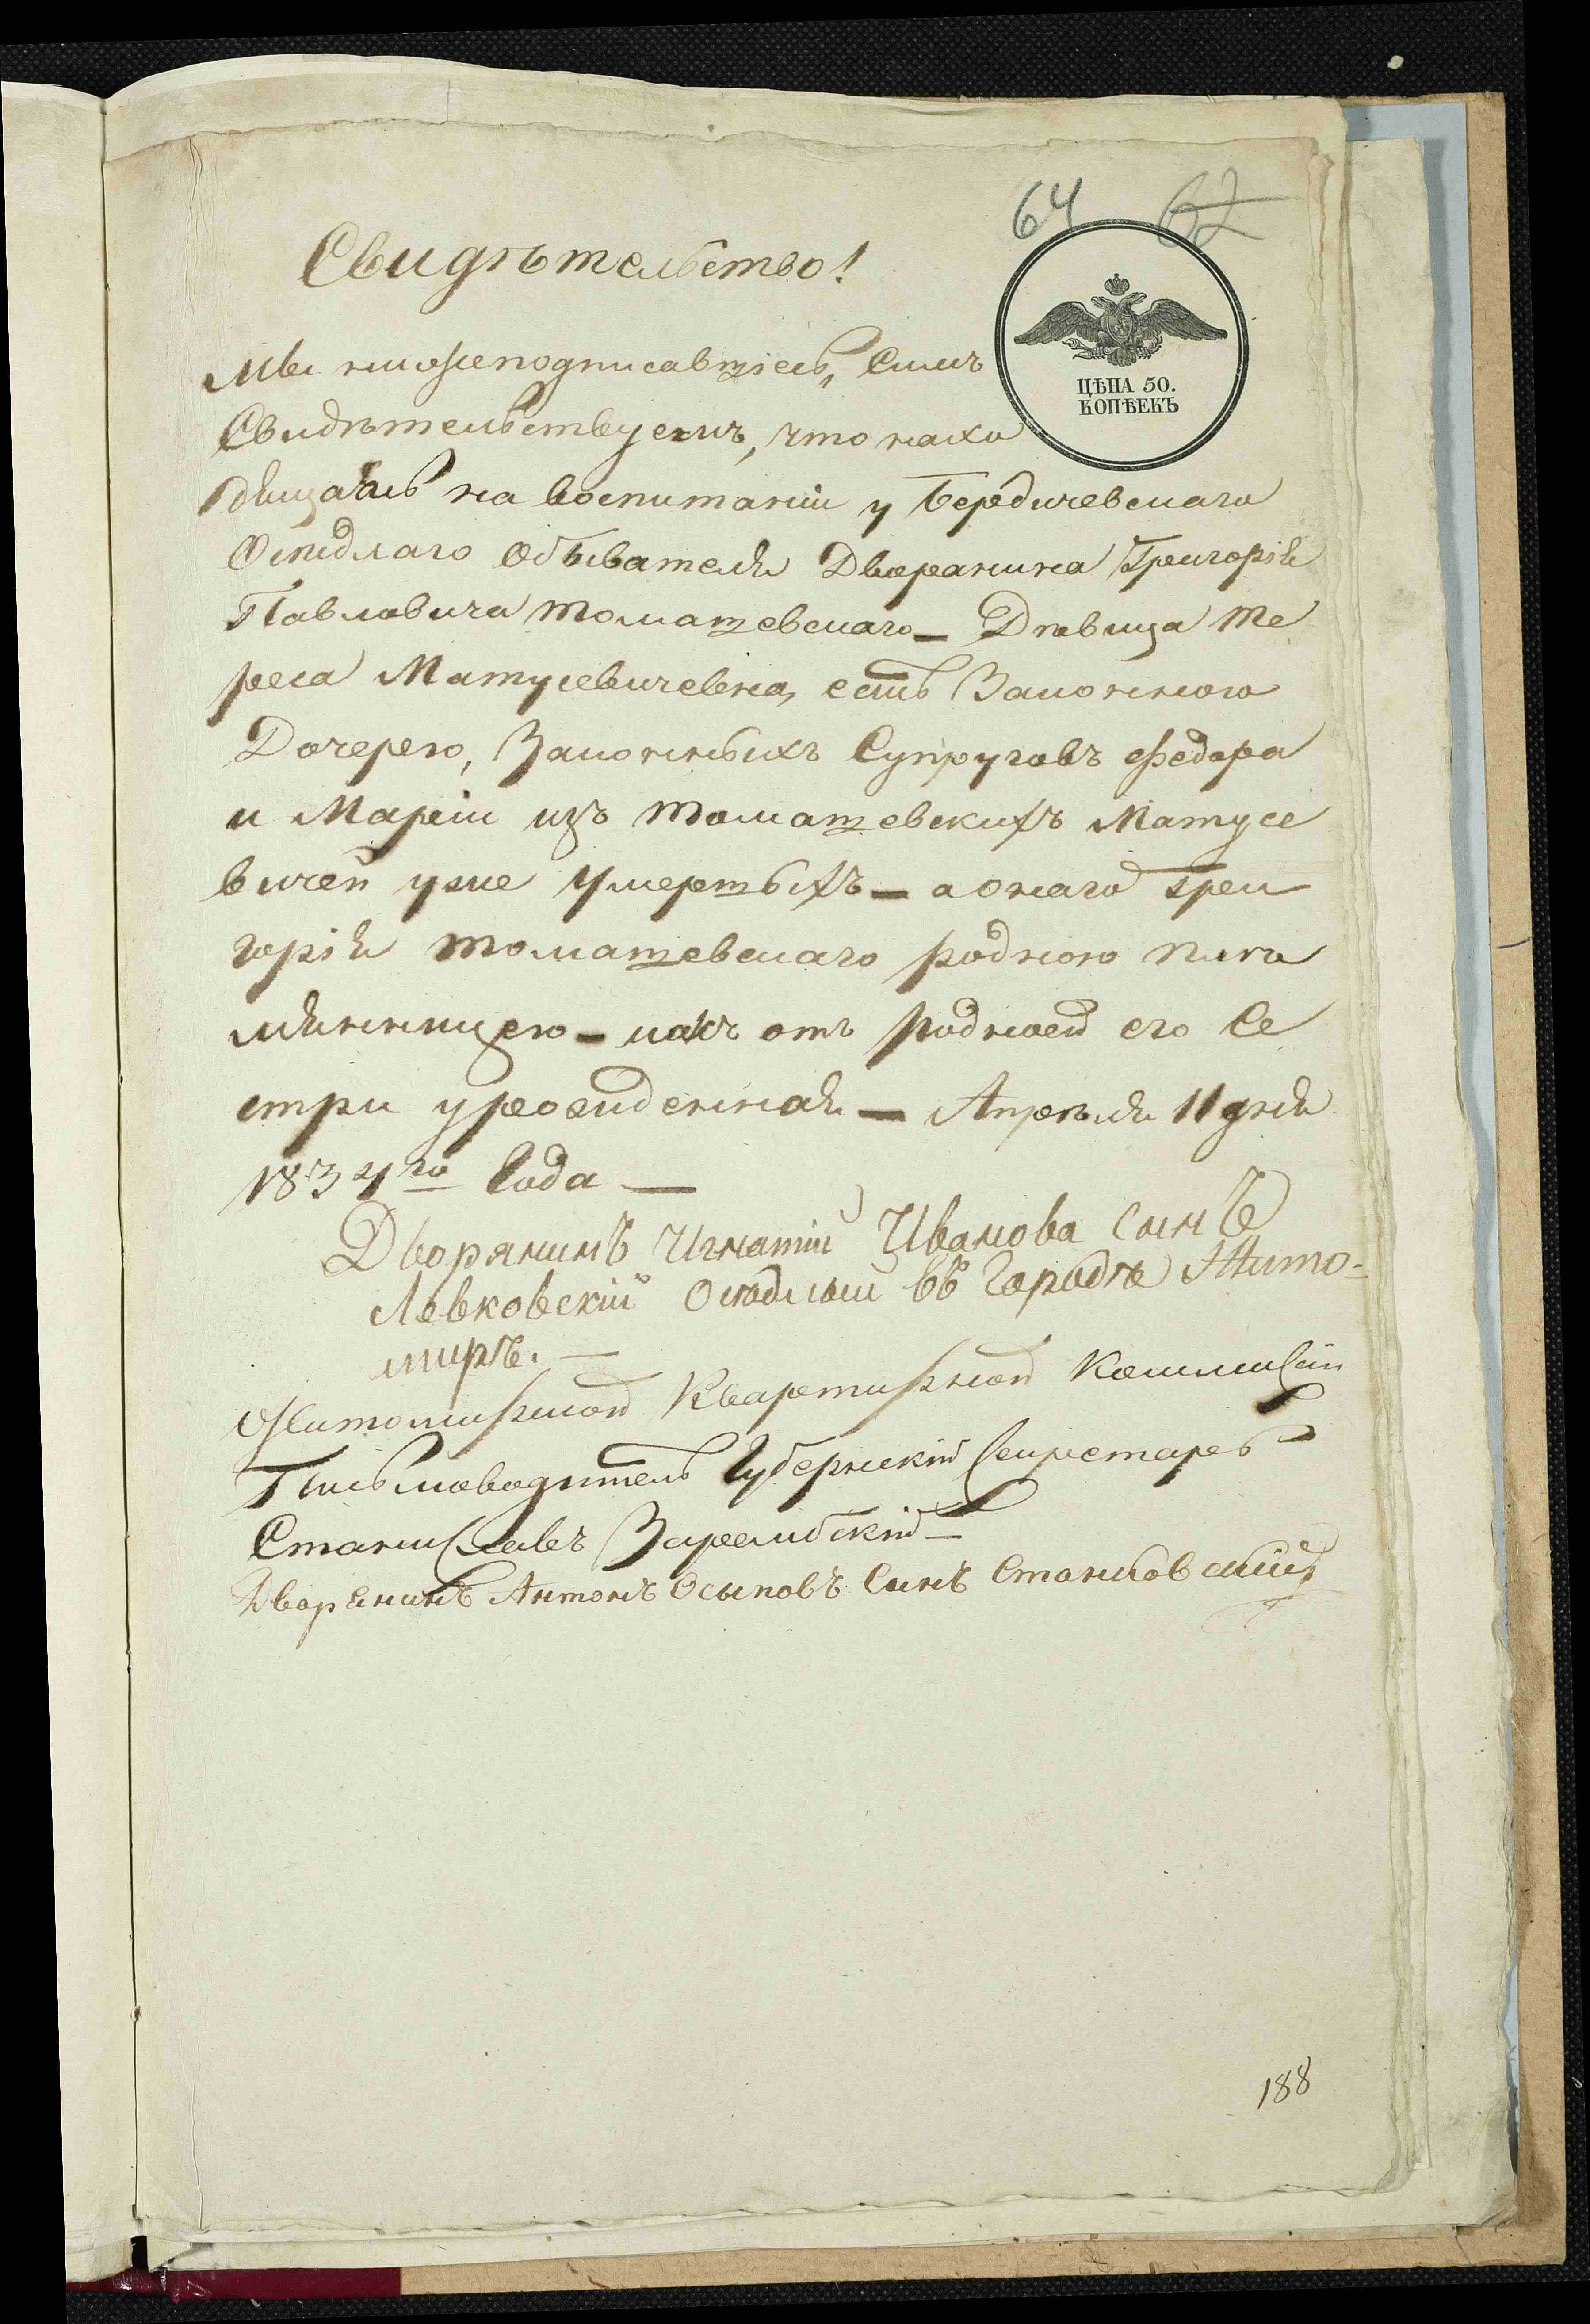 64 62
Свидѣтельство!
ЦѢНА 50.
КОПѢЕКЪ
Мы нижеподписавшіесь, Симъ
Свидѣтельствуемъ, что нахо
дящаясь на воспитаніи у Бердичевскаго
Осѣдлаго Обывателя Дворанина Григорія
Павловича Томашевскаго — Дѣвица Те
реса Матусевичевна, есть Законною
Дочерею, Законныхъ Супруговъ Федора
и Маріи изъ Томашевскихъ Матусе
вичей уже Умершыхъ — а онаго Гри
горія Томашевскаго родною племя
мянницею — какъ отъ Родной его Се
стри урожиденная — Апрѣля 11 дня
1834го Года —
Дворянинъ Игнатій Ивановa сынъ
Левковскій Осѣдлый въ Городѣ Жито-
мирѣ. —
Житомирской Квартирной Коммисіи
Письмоводитель Губернскій Секретарь
Станиславъ Зарембскій —
Дворянинъ Антонъ Осыповъ Сынъ Станковскій
188